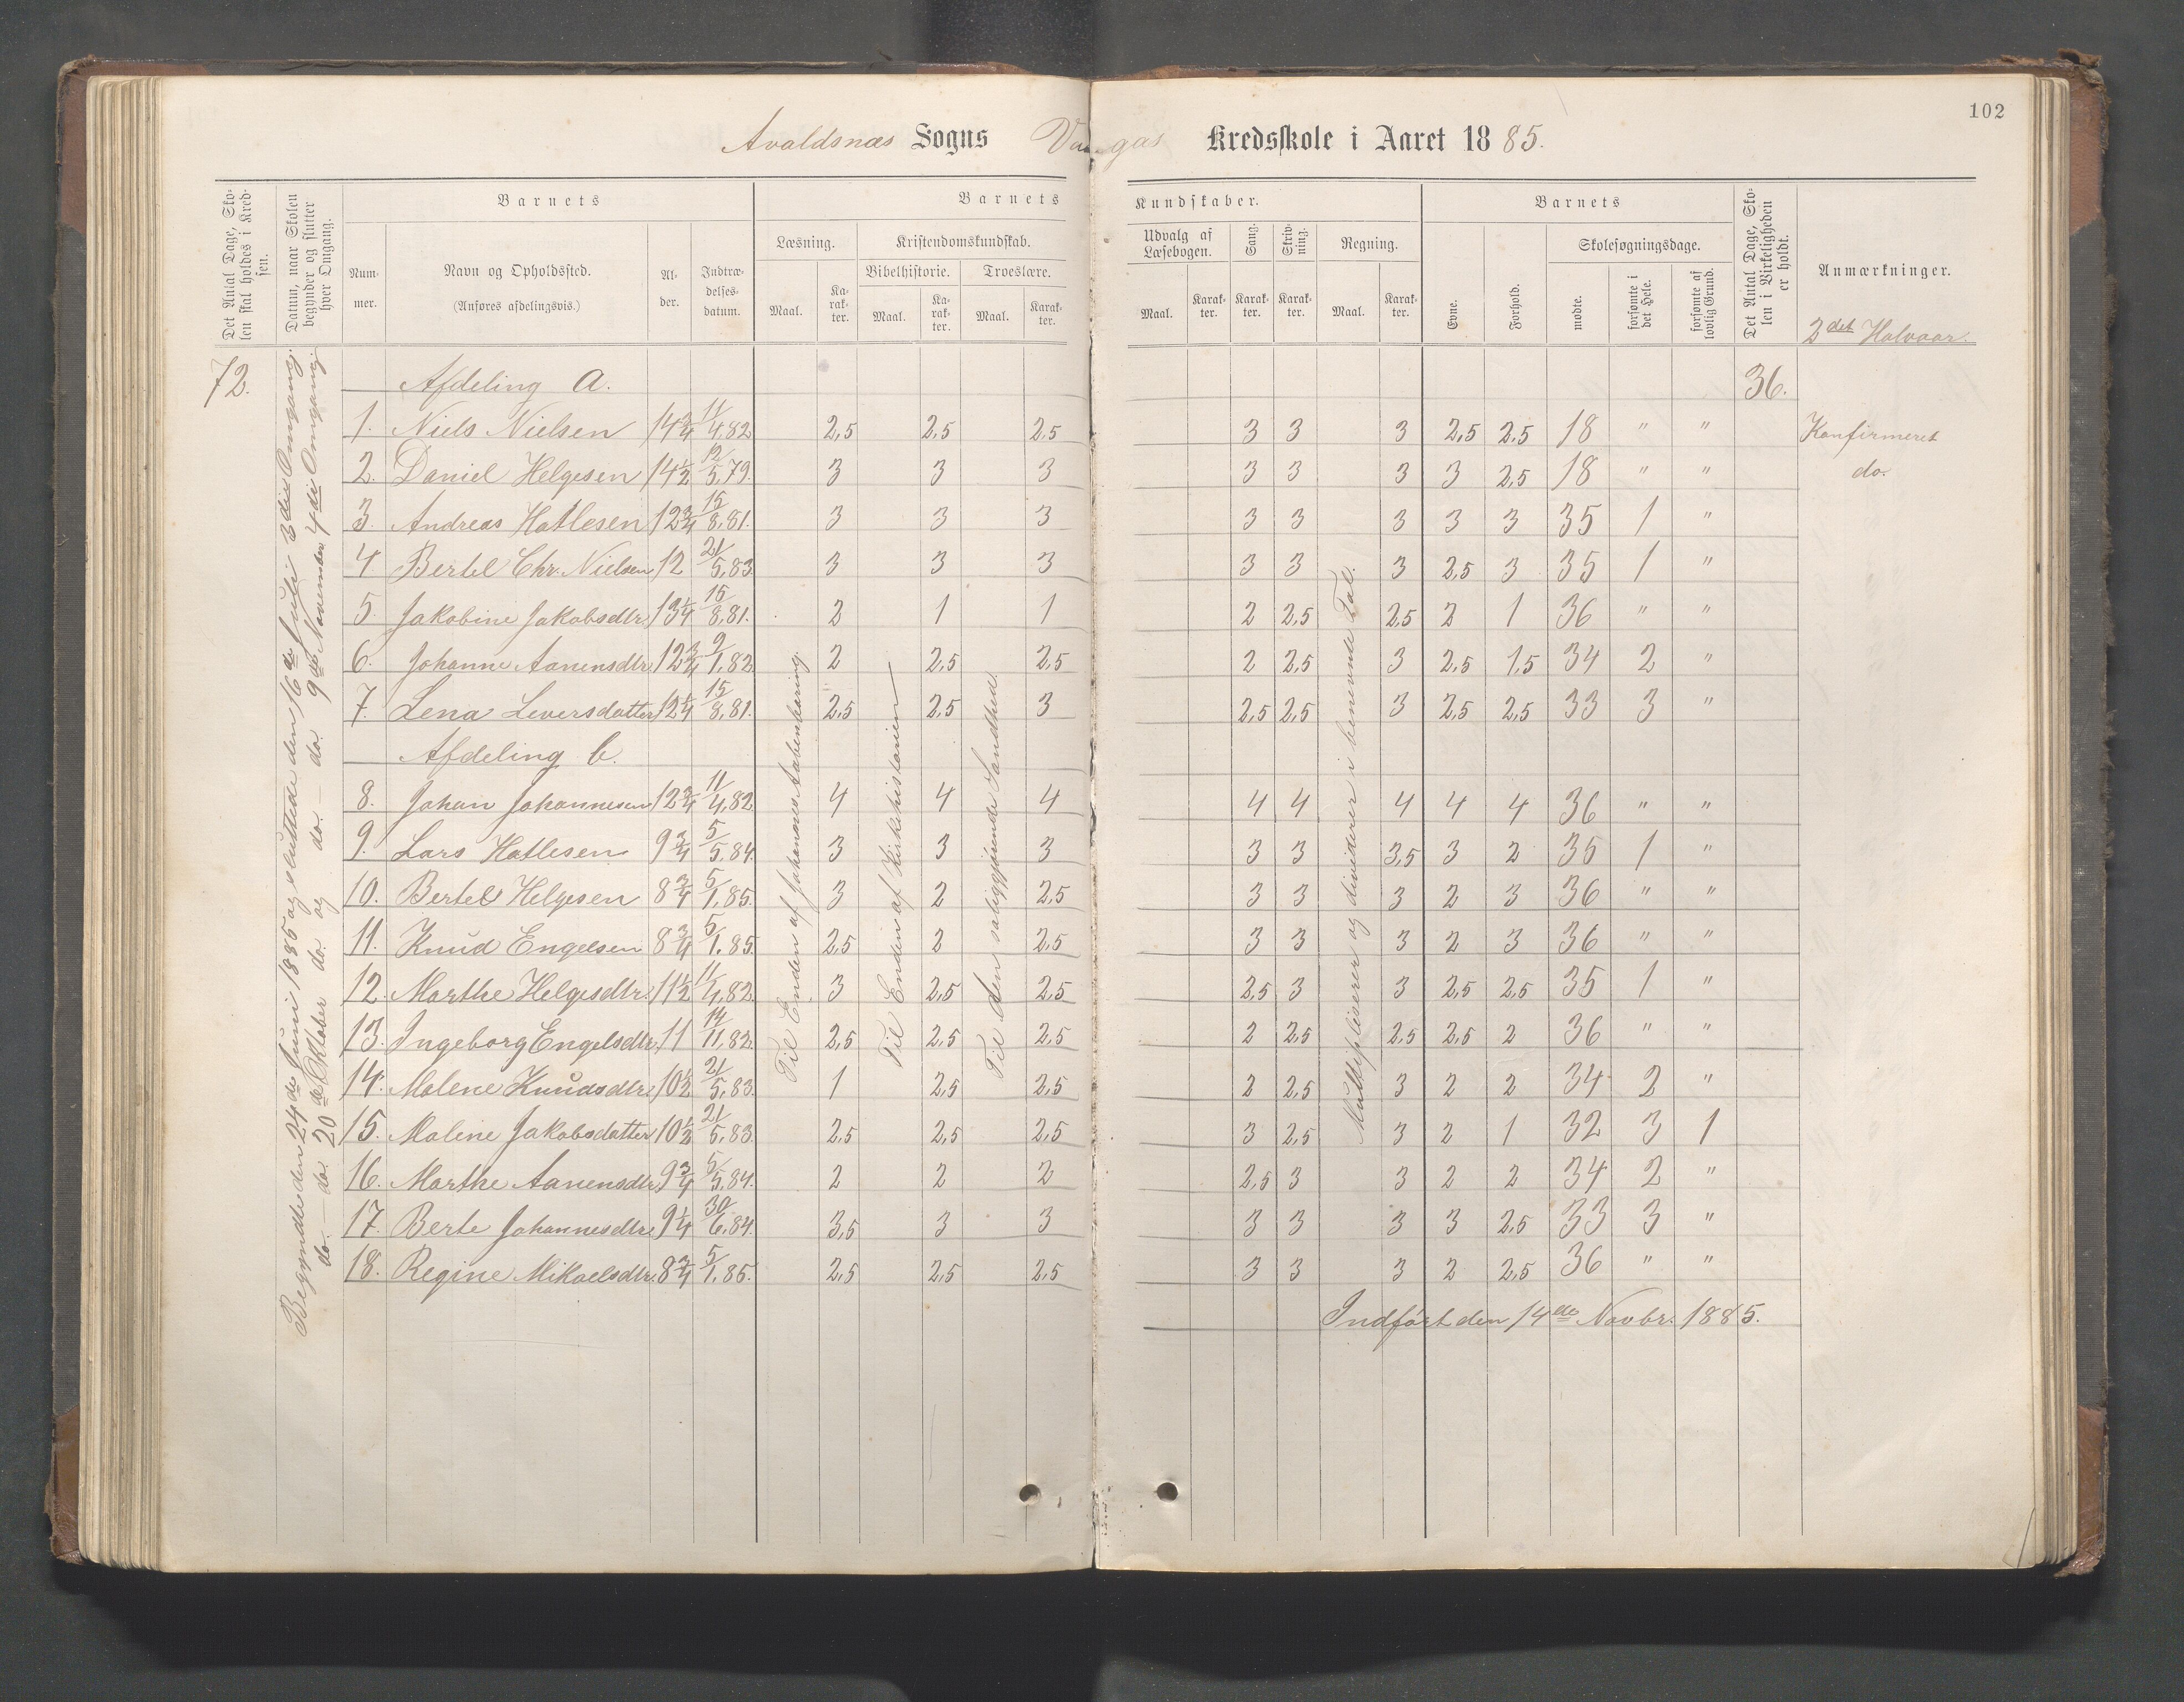 102
Avaldsnæs Sogns Vaagas Kredsskole i Aaret 1885.
Det Antal Dage, Skolen skal holdes i Kredsen.
Datum, naar Skolen begynder og slutter hver Omgang.
Barnets
Nummer.
Navn og Opholdssted.
(Anføres afdelingsvis.)
Alder.
Indtrædelsesdatum.
Barnets Kundskaber.
Læsning.
Maal. Karakter.
Kristendomskundskab.
Bibelhistorie.
Maal. Karakter.
Troeslære.
Maal. Karakter.
Udvalg af Læsebogen.
Maal. Karakter.
Sang.
Karakter.
Skrivning.
Karakter.
Regning.
Maal. Karakter.
Barnets
Evne.
Forhold.
Skolesøgningsdage.
mødte.
forsømte i det Hele.
forsømte af lovlig Grund.
Det Antal Dage, Skolen i Virkeligheden er holdt.
Anmærkninger.
2det Halvaar.
72.
Begyndte den 24de Juni 1885 og sluttede den 16de Juli 3die Omgang.
do. — do. 20de Oktober do. og do. — do. 9de November 4de Omgang
Til Enden af Johannes Aabenbaring.
Til Enden af Kirkehistorien
Til den saliggjørende Sandhed.
Multipliserer og dividerer i benevnte Tal.
Afdeling a. 36.
1. Niels Nielsen 14 3/4 11/4,82 2,5 2,5 2,5 3 3 3 2,5 2,5 18 " " Konfirmeret
2. Daniel Helgesen 14 1/2 12/5,79. 3 3 3 3 3 3 3 2,5 18 " " do.
3. Andreas Hatlesen 12 3/4 15/8,81. 3 3 3 3 3 3 3 3 35 1 "
4 Bertel Chr. Nielsen 12 21/5,83 3 3 3 3 3 3 2,5 3 35 1 "
5. Jakobine Jakobsdtr. 13 1/4 15/8,81. 2 1 1 2 2,5 2,5 2 1 36 " "
6. Johanne Aanensdtr. 12 3/4 9/1,82 2 2,5 2,5 2 2,5 3 2,5 1,5 34 2 "
7. Lena Leversdatter 12 1/4 15/8,81. 2,5 2,5 3 2,5 2,5 3 2,5 2,5 33 3 "
Afdeling b.
8. Johan Johannesen 12 3/4 11/4,82 4 4 4 4 4 4 4 4 36 " "
9. Lars Hatlesen 9 3/4 5/5,84. 3 3 3 3 3 3,5 3 2 35 1 "
10. Bertel Helgesen 8 3/4 5/1,85. 3 2 2,5 3 3 3 2 3 36 " "
11. Knud Engelsen 8 3/4 5/1.85 2,5 2 2,5 3 3 3 2 3 36 " "
12. Marthe Helgesdtr. 11 1/2 11/4,82 3 2,5 2,5 2,5 3 3 2,5 2,5 35 1 "
13. Ingeborg Engelsdtr. 11 14/11,82 2,5 2,5 2,5 2 2,5 2,5 2,5 2 36 " "
14. Malene Knudsdtr. 10 1/2 21/5,83. 1 2,5 2,5 2 2,5 3 2 2 34 2 "
15. Malene Jakobsdatter 10 1/2 21/5,83. 2,5 2,5 2,5 3 2,5 3 2 1 32 3 1
16. Marthe Aanensdtr. 9 3/4 5/5,84. 2 2 2 2,5 3 3 2 2 34 2 "
17. Berte Johannesdtr. 9 1/4 30/6,84. 3,5 3 3 3 3 3 3 2,5 33 3 "
18. Regine Mikaelsdtr. 8 3/4 5/1,85. 2,5 2,5 2,5 3 3 3 2 2,5 36 " "
Indført den 14de Novbr. 1885.